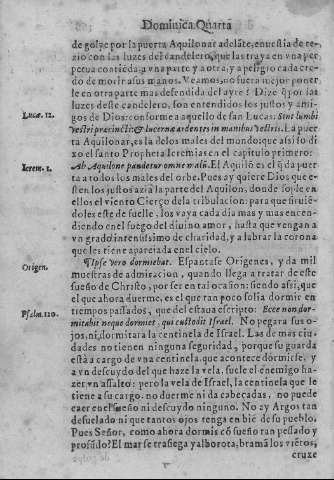 Dominica Quarta
de golpe por la puerta Aquilonar adelãte, en vestia de re-
zio con las luzes del candelero, que las traya en vna per
petua contieda, a vna parte y otra, y a peligro cada cre-
do de morir a sus manos. Veamos, no fuera mejor poner
le en otra parte mas defendida del ayre? Dize q̃ por las
luzes desse candelero, son entendidos los justos y ami-
gos de Dios: conforme a aquello de san Lucas. Sint lumbi
Lucæ. 12.
vestri præcincti, & lucernæ ardentes in manibus vestris. La puerta
Aquilonar, es la de los males del mundo: que assi so di
xo el santo Propheta Ieremias en el capitulo primero:
Ierem. 1.
Ab Aquilone pandetur omne malũ. El Aquilõ es el q̃ da puer
ta a todos los males del orbe. Pues ay quiere Dios que es-
ten los justos azia la parte del Aquilon, donde sople en
ellos el viento Cierço de la tribulacion: para que siruiẽ-
doles este de fuelle, los vaya cada dia mas y mas encen-
diendo en el fuego del diuino amor, hasta que vengan a
vn grado intensissimo de charidad, y a labrar la corona
que les tiene aparejada en el cielo.
Ipse vero dormiebat. Espantase Origenes, y da mil
Origen.
muestras de admiracion, quando llega a tratar de este
sueño de Christo, por ser en tal ocasion: siendo assi, que
el que ahora duerme, es el que tan poco solia dormir en
tiempos passados, que del estaua escripto: Ecce non dor-
Psalm. 120.
mitabit neque dormiet, qui custodit Israel. No pegara sus o-
jos, ni dormitara la centinela de Israel. Las de mas ciu-
dades no tienen ninguna seguridad, porque su guarda
està a cargo de vna centinela, que acontece dormirse, y
a vn descuydo del que haze la vela, suele el enemigo ha-
zer vn assalto: pero la vela de Israel, la centinela que le
tiene a su cargo, no duerme ni da cabecadas, no puede
caer en el sueño ni descuydo ninguno. No ay Argos tan
desuelado ni que tantos ojos tenga en bie de su pueblo.
Pues Señor, como ahora dormis cõ sueño tan pesado y
profũdo? El mar se trasiega y alborota, bramã los viẽtos,
cruxe